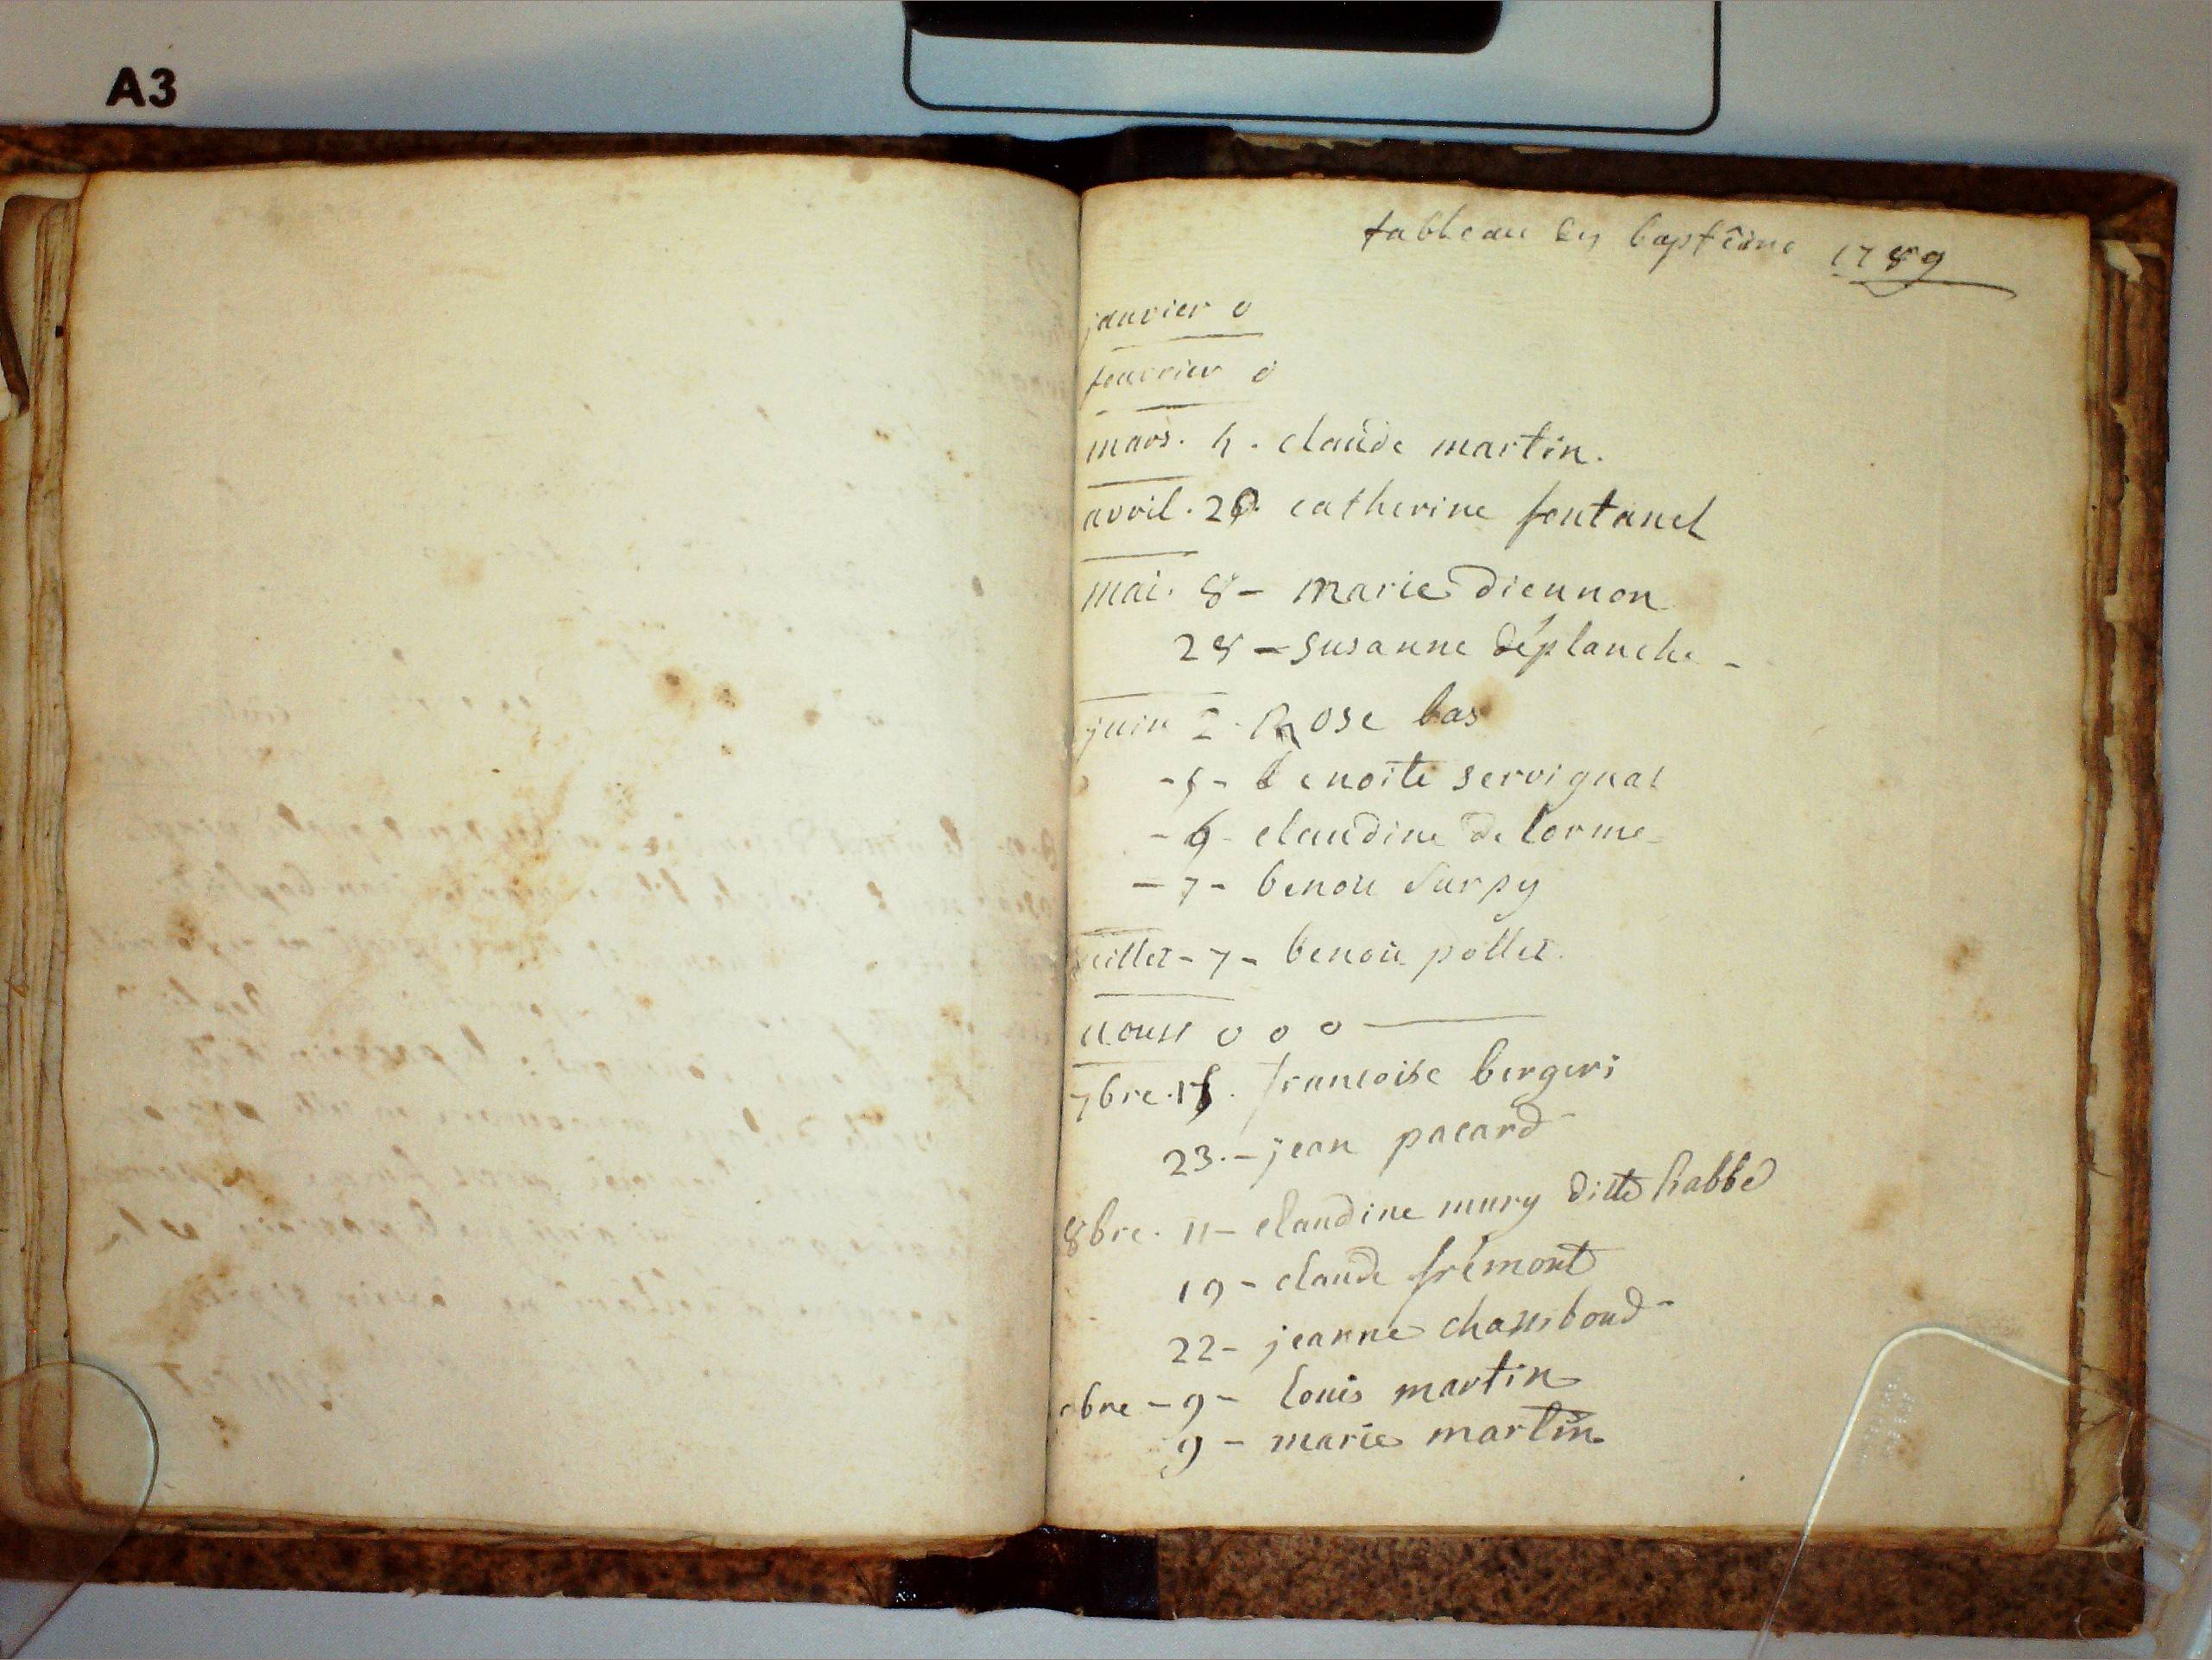 A3
tableau des baptême 1789
janvier 0
fevrier 0
mars. 4. claude martin.
avril. 20. catherine fontanel
mai. 8 - marie diennon
28 - susanne déplanche -
juin 2. Rose bas
- 5 - benoite servignat
- 6 - claudine de lorme
- 7 - benoit surpy
juillet - 7 - benoit pollet.
aoust 0 0 0
7bre. 15. francoise bergeri
23. - jean pacard
8bre. 11 - claudine mury ditte
19 - claude frémont
22 - jeanne
9bre - 9 - louis martin
9 - marie martin